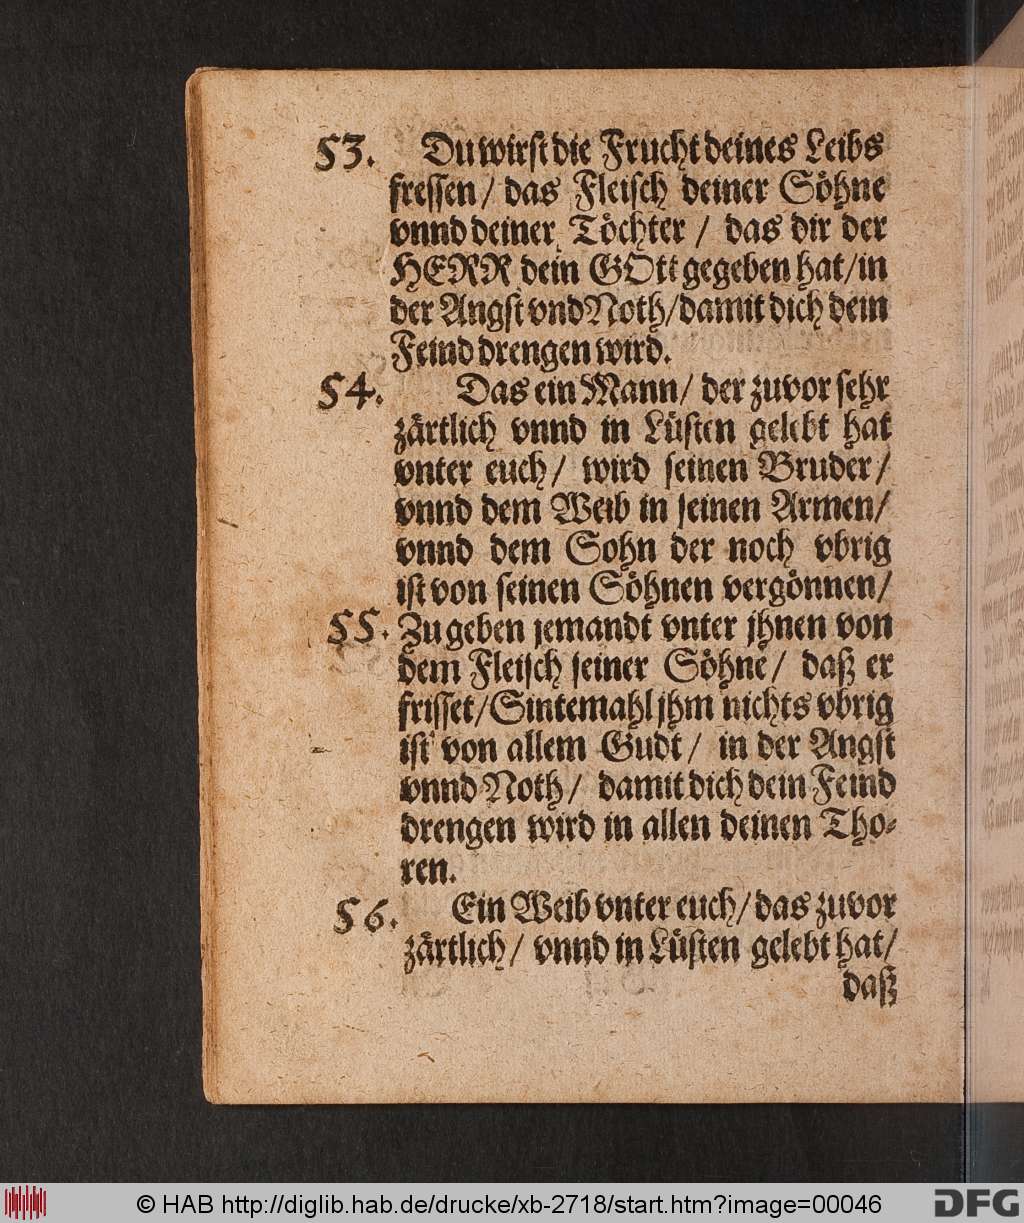 53. Du wirst die Frucht deines Leibs
fressen / das Fleisch deiner Söhne
vnnd deiner Töchter / das dir der
HERR dein GOtt gegeben hat / in
der Angst vnd Noth / damit dich dein
Feind drengen wird.
54. Das ein Mann / der zuvor sehr
zärtlich vnnd in Lüsten gelebt hat
vnter euch / wird seinen Bruder /
vnnd dem Weib in seinen Armen /
vnnd dem Sohn der noch vbrig
ist von seinen Söhnen vergönnen /
55. Zu geben jemandt vnter jhnen von
dem Fleisch seiner Söhne / daß er
frisset / Sintemahl jhm nichts vbrig
ist von allem Gudt / in der Angst
vnnd Noth / damit dich dein Feind
drengen wird in allen deinen Tho-
ren.
56. Ein Weib vnter euch / das zuvor
zärtlich / vnnd in Lüsten gelebt hat /
daß
© HAB http://diglib.hab.de/drucke/xb-2718/start.htm?image=00046
DFG